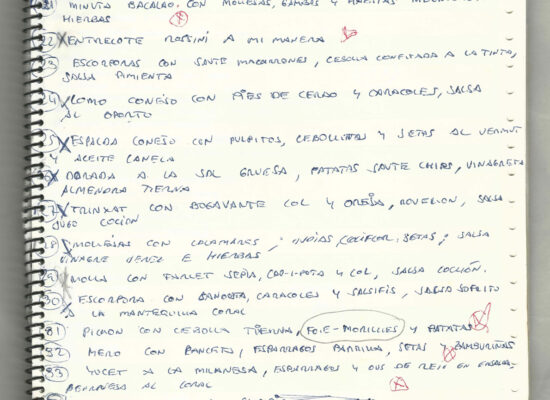 MINUTA BACALAO, CON MOLLEJAS, GAMBAS Y
HIERBAS
22 ENTRECOTE ROSSINI A MI MANERA
3 ESCORPORAS CON SAUTE MACARRONES, CEBOLLA CONFITADA A LA TINTA,
SALSA PIMIENTA
24 LOMO CONEJO CON PIES DE CERDO Y CARACOLES, SALSA
AL OPORTO
5 ESPALDA CONEJO CON PULPITOS, CEBOLLITAS Y SETAS AL VERMUT
Y ACEITE CANELA
DORADA A LA SAL GRUESA, PATATAS SAUTE CHIPS, VINAGRETA
ALMENDRA TIERNA
TRINXAT CON BOGAVANTE COL Y OREJA, ROVELLON, SALSA
JUGO COCION
8 MOLLEJAS CON CALAMARES, COLIFLOR, SETAS, SALSA
VINAGRE JEREZ E HIERBAS
9 MOLLA CON FARCET SEPIA, CAP-I-POTA Y COL, SALSA COCCIÓN.
30 ESCORPORA CON PANCETA, CARACOLES Y SALSIFIS, SALSA SOFRITO
A LA MANTEQUILLA CORAL
31 PICHON CON CEBOLLA TIERNA, FOIE-MORILLES Y PATATAS
32 MERO CON PANCETA, ESPARRAGOS PARRILLA, SETAS Y ZAMBURIÑAS
33 SUCET A LA MILANESA, ESPARRAGOS Y OUS DE REIG EN ENSALADA,
BEARNESA AL CORAL